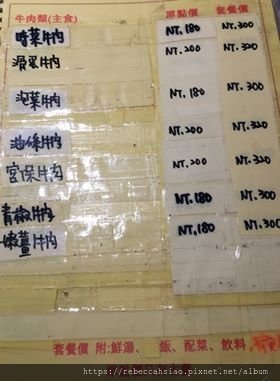 牛肉類(主食) 單點價 套餐價
時菜牛肉 NT.180 NT.300
滑蛋牛肉 NT.200 NT.320
泡菜牛肉 NT.180 NT.300
油條牛肉 NT.200 NT.320
宮保牛肉 NT.200 NT.320
青椒牛肉 NT.180 NT.300
嫩薑牛肉 NT.180 NT.300
套餐價 附:鮮湯、 飯、配菜、飲料
https://rebeccahsiao.pixnet.net/album